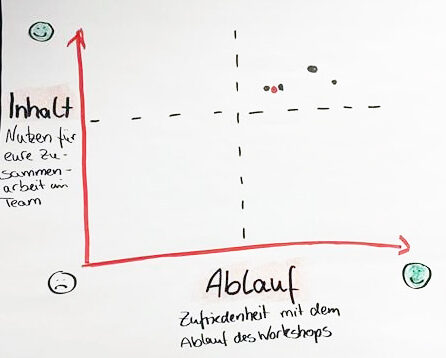 Inhalt
Nutzen für
eure Zu-
sammen-
arbeit im
Team
Ablauf
Zufriedenheit mit dem
Ablauf des Workshops